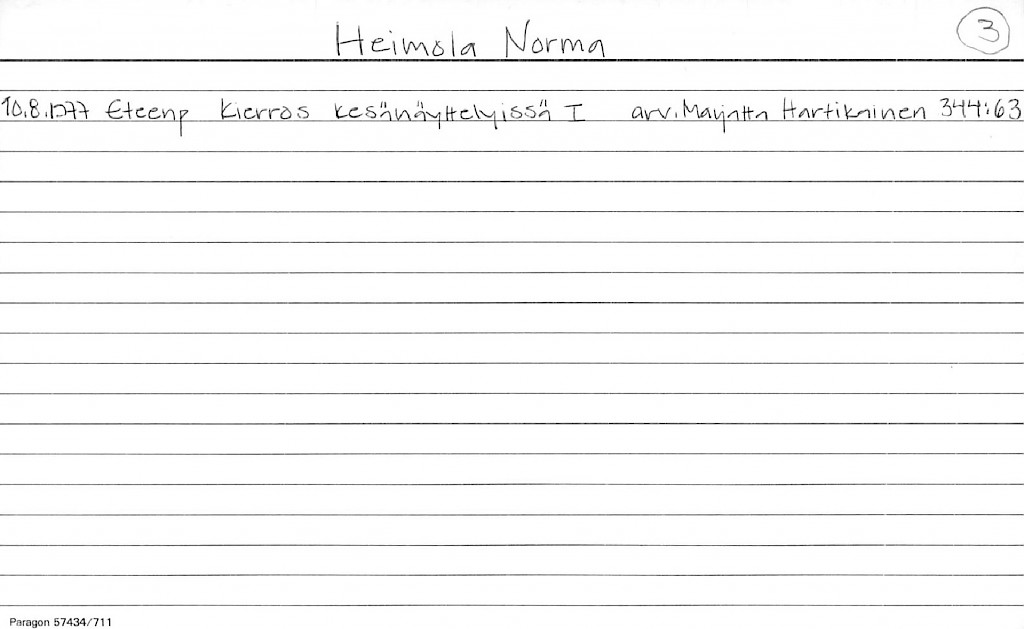 Heimola Norma
3
10.8.1977 Eteenp Kierros kesänäyttelyissä I arv. Marjatta Hartikainen 344:63
Paragon 57434/711